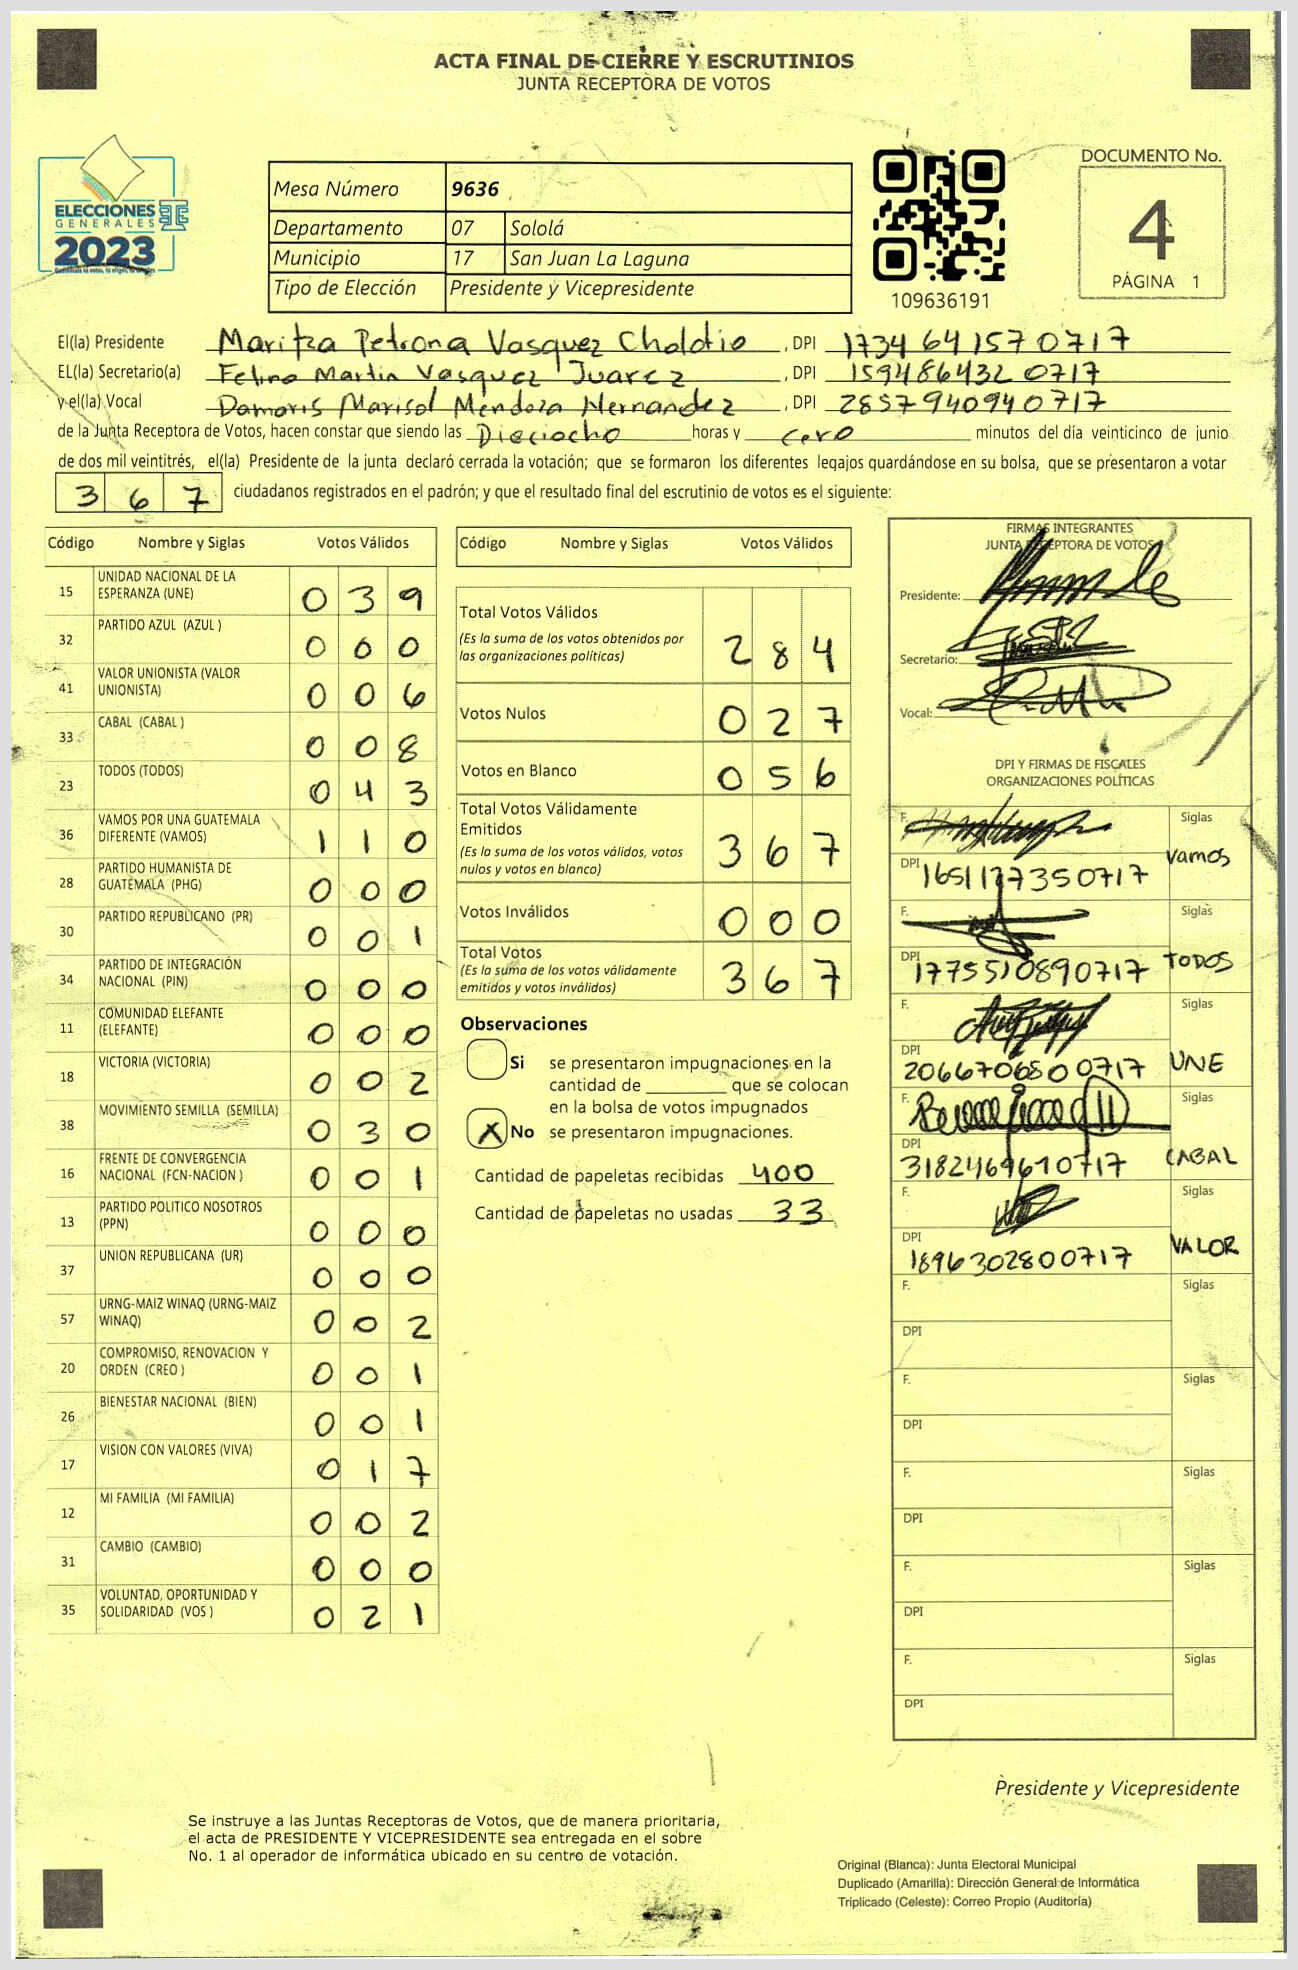 ACTA FINAL DE CIERRE Y ESCRUTINIOS
JUNTA RECEPTORA DE VOTOS
ELECCIONES
GENERALES
2023
Mesa Número 9636
Departamento 07 Sololá
Municipio 17 San Juan La Laguna
Tipo de Elección Presidente y Vicepresidente
109636191
DOCUMENTO No.
4
PÁGINA 1
El(la) Presidente Maritza Petrona Vasquez Cholotio , DPI 1734 64157 0717
EL(la) Secretario(a) Felino Martin Vasquez Juarez , DPI 159486432 0717
y el(la) Vocal Damaris Marisol Mendoza Hernandez , DPI 2857940940717
de la Junta Receptora de Votos, hacen constar que siendo las Dieciocho horas y cero minutos del día veinticinco de junio
de dos mil veintitrés, el(la) Presidente de la junta declaró cerrada la votación; que se formaron los diferentes legajos guardándose en su bolsa, que se presentaron a votar
3 6 7 ciudadanos registrados en el padrón; y que el resultado final del escrutinio de votos es el siguiente:
Código Nombre y Siglas Votos Válidos
15 UNIDAD NACIONAL DE LA ESPERANZA (UNE) 0 3 9
32 PARTIDO AZUL (AZUL ) 0 0 0
41 VALOR UNIONISTA (VALOR UNIONISTA) 0 0 6
33 CABAL (CABAL ) 0 0 8
23 TODOS (TODOS) 0 4 3
36 VAMOS POR UNA GUATEMALA DIFERENTE (VAMOS) 1 1 0
28 PARTIDO HUMANISTA DE GUATEMALA (PHG) 0 0 0
30 PARTIDO REPUBLICANO (PR) 0 0 1
34 PARTIDO DE INTEGRACIÓN NACIONAL (PIN) 0 0 0
11 COMUNIDAD ELEFANTE (ELEFANTE) 0 0 0
18 VICTORIA (VICTORIA) 0 0 2
38 MOVIMIENTO SEMILLA (SEMILLA) 0 3 0
16 FRENTE DE CONVERGENCIA NACIONAL (FCN-NACION ) 0 0 1
13 PARTIDO POLITICO NOSOTROS (PPN) 0 0 0
37 UNION REPUBLICANA (UR) 0 0 0
57 URNG-MAIZ WINAQ (URNG-MAIZ WINAQ) 0 0 2
20 COMPROMISO, RENOVACION Y ORDEN (CREO ) 0 0 1
26 BIENESTAR NACIONAL (BIEN) 0 0 1
17 VISION CON VALORES (VIVA) 0 1 7
12 MI FAMILIA (MI FAMILIA) 0 0 2
31 CAMBIO (CAMBIO) 0 0 0
35 VOLUNTAD, OPORTUNIDAD Y SOLIDARIDAD (VOS ) 0 2 1
Código Nombre y Siglas Votos Válidos
Total Votos Válidos 2 8 4
(Es la suma de los votos obtenidos por
las organizaciones políticas)
Votos Nulos 0 2 7
Votos en Blanco 0 5 6
Total Votos Válidamente
Emitidos 3 6 7
(Es la suma de los votos válidos, votos
nulos y votos en blanco)
Votos Inválidos 0 0 0
Total Votos 3 6 7
(Es la suma de los votos válidamente
emitidos y votos inválidos)
Observaciones
Si se presentaron impugnaciones en la
cantidad de ________ que se colocan
en la bolsa de votos impugnados
X No se presentaron impugnaciones.
Cantidad de papeletas recibidas 400
Cantidad de papeletas no usadas 33
FIRMAS INTEGRANTES
JUNTA RECEPTORA DE VOTOS
Presidente:
Secretario:
Vocal:
DPI Y FIRMAS DE FISCALES
ORGANIZACIONES POLÍTICAS
F. Siglas
DPI 1651177350717 Vamos
F. Siglas
DPI 1775510890717 TODOS
F. Siglas
DPI 2066706800717 UNE
F. Siglas
DPI 3182469610717 CABAL
F. Siglas
DPI 1896302800717 VALOR
F. Siglas
DPI
F. Siglas
DPI
F. Siglas
DPI
F. Siglas
DPI
F. Siglas
DPI
Presidente y Vicepresidente
Se instruye a las Juntas Receptoras de Votos, que de manera prioritaria,
el acta de PRESIDENTE Y VICEPRESIDENTE sea entregada en el sobre
No. 1 al operador de informática ubicado en su centro de votación.
Original (Blanca): Junta Electoral Municipal
Duplicado (Amarilla): Dirección General de Informática
Triplicado (Celeste): Correo Propio (Auditoría)